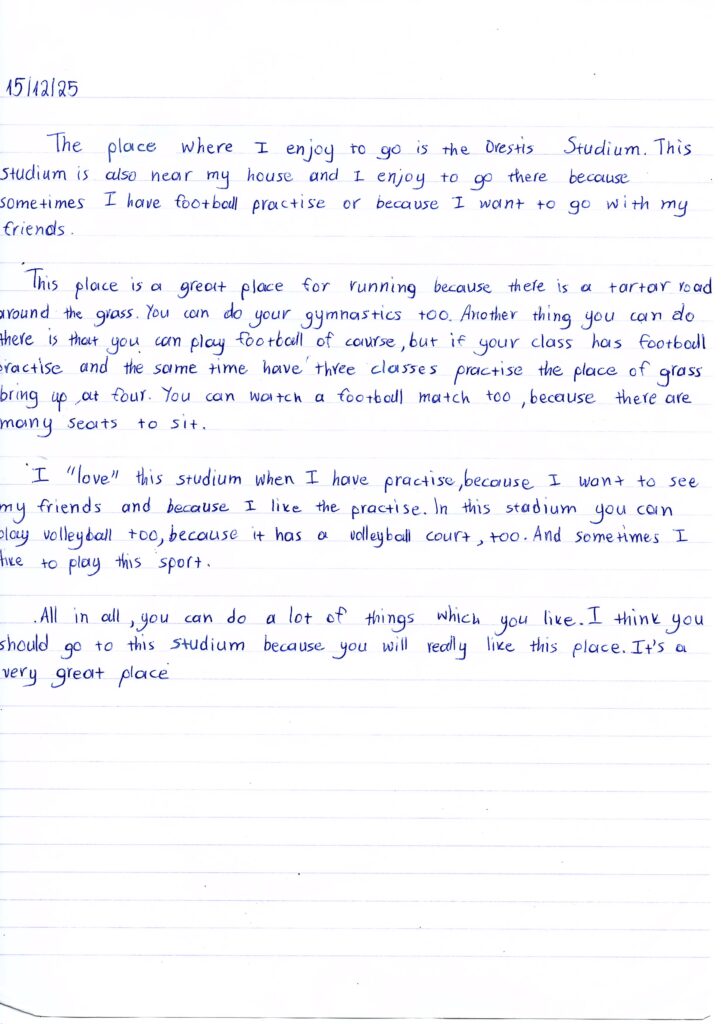 15/12/25
The place where I enjoy to go is the Orestis Studium. This
studium is also near my house and I enjoy to go there because
sometimes I have football practise or because I want to go with my
friends.
This place is a great place for running because there is a tartar road
around the grass. You can do your gymnastics too. Another thing you can do
there is that you can play football of course, but if your class has football
practise and the same time have three classes practise the place of grass
bring up at four. You can watch a football match too, because there are
many seats to sit.
I "love" this studium when I have practise, because I want to see
my friends and because I like the practise. In this stadium you can
play volleyball too, because it has a volleyball court, too. And sometimes I
like to play this sport.
All in all, you can do a lot of things which you like. I think you
should go to this studium because you will really like this place. It's a
very great place